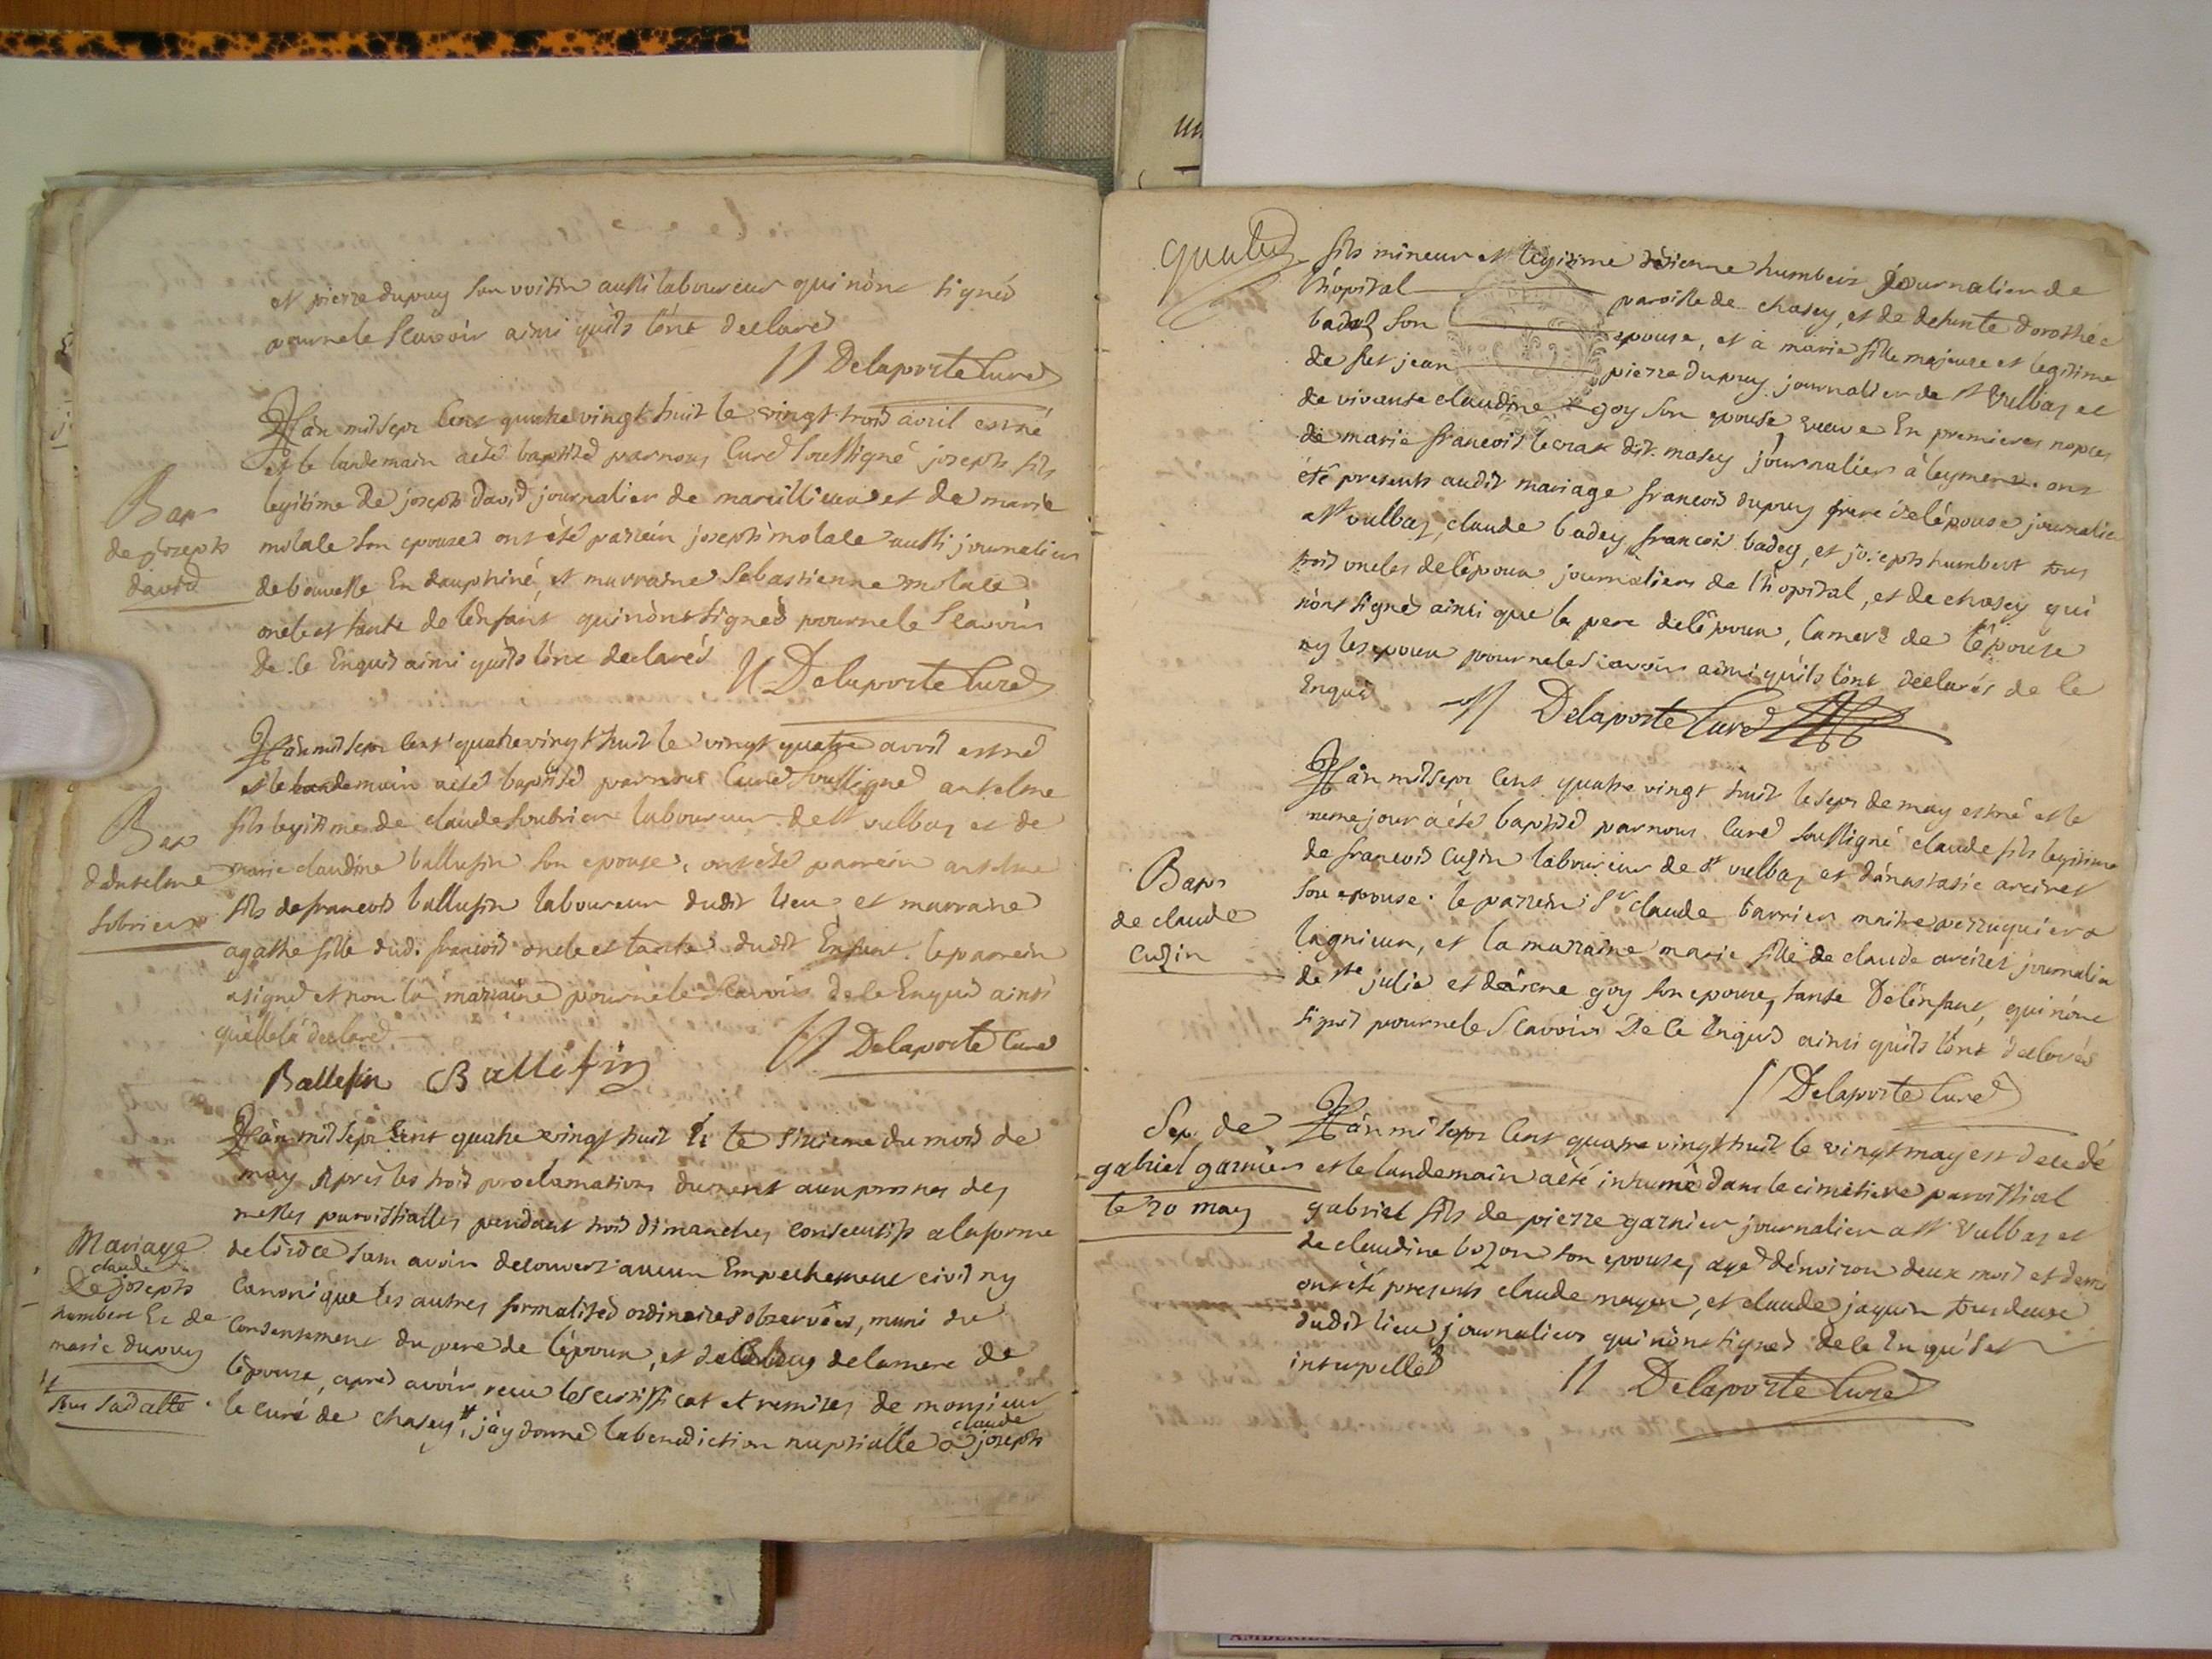 et pierre dupuy son voisin aussi laboureur qui n'ont signés
pour ne le scavoir ainsi qu'ils l'ont declaré
Delaporte Curé
L'an mil sept cent quatre vingt huit le vingt trois avril est né
et le landemain a été baptisé par nous Curé soussigné joseph fils
Bap
de joseph
david
legitime de joseph david journalier de marcillieux et de marie
molale son epouse ont été parrein joseph molale aussi journalier
de bouvesse En dauphiné, et marraine Sebastienne molale
oncle et tante de l'enfant qui n'ont signés pour ne le scavoir
de ce Enquis ainsi qu'ils l'ont declarés
Delaporte Curé
L'an mil sept cent quatre vingt huit le vingt quatre avril est né
et le landemain a été baptisé par nous Curé soussigné anselme
Bap
d'anselme
sobrieux
fils legitime de claude soubrieu laboureur de st vulbas et de
marie claudine ballufin son epouse, ont été parrein anselme
fils de francois ballufin laboureur dudit lieu et marraine
agathe fille dud. francois oncle et tante dudit Enfant. le parrein
a signé et non la marraine pour ne le scavoir de ce Enquis ainsi
qu'elle l'a declaré
Delaporte Curé
Ballefin Ballifin
L'an mil sept cent quatre vingt huit le sixieme du mois de
may Après les trois proclamations dument aux prones des
messes paroissialles pendant trois dimanches consecutifs a la forme
Mariage
claude
De joseph
humbert Et de
marie dupuy
de l'ordce sans avoir decouvert aucun Empechement civil ny
Canonique les autres formalités ordinaires observées, muni du
Consentement du pere de l'epoux, et de la mere de
l'epouse, après avoir recu les certifficat et remises de monsieur
le curé de chasey # j'ay donné la benediction nuptialle a claude joseph
fils mineur et legitime d'etienne humbert journalier de
l'hopital paroisse de chasey, et de defunte dorothée
badey son epouse, et a marie fille majeure et legitime
de fet jean pierre dupuy journalier de st Vulbas et
de vivante claudine goy son epouse, veuve En premieres nopces
de marie francois lecrat dit masey journalier à leyment. ont
été presents audit mariage francois dupuy frere de l'épouse journalier
a st vulbas, claude badey francois badey, et joseph humbert tous
trois oncles de l'epoux journaliers de l'hopital, et de chasey qui
n'ont signés ainsi que le pere de l'epoux, la mere de l'epouse
ny les epoux pour ne le scavoir ainsi qu'ils l'ont declarés de ce
Enquis
Delaporte Curé
L'an mil sept cent quatre vingt huit le sept de may est né et le
meme jour a été baptisé par nous Curé soussigné claude fils legitime
Bap
de claude
Cuzin
de francois Cuzin laboureur de st vulbas et d'anastasie arcivet
son epouse. le parrein sr claude barrier maitre perruquier a
lagnieux, et la marraine marie fille de claude arcivet journalier
de ste julie et d'etiene goy son epouse, tante De l'enfant, qui n'ont
signés pour ne le scavoir De ce Enquis ainsi qu'ils l'ont declarés
Delaporte Curé
Sep. de
gabriel garnier
le 20 may
L'an mil sept cent quatre vingt huit le vingt may est decedé
et le landemain a été inhumé dans le cimetiere paroissial
gabriel fils de pierre garnier journalier a st Vulbas et
de claudine bozon son epouse, agé d'environ deux mois et demi
ont été presents claude mayeu, et claude jaquin tous deux
dudit lieu journaliers qui n'ont signés de ce Enquis et
interpellés
Delaporte Curé